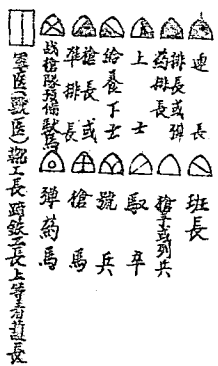 連長
排長或弹
药排長
上士
给養下士
槍長或
準排長
战槍隊預備馱馬
班長
槍手或列兵
馭卒
號兵
槍馬
彈葯馬
軍医(獸医)工長蹄鉄工長上等看護長